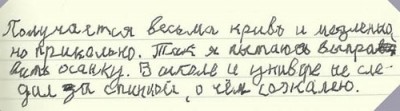 Получается весьма криво и медленно,
но прикольно. Так я пытаюсь выпра-
вить осанку. В школе и универе не сле-
дил за спиной, о чём сожалею.